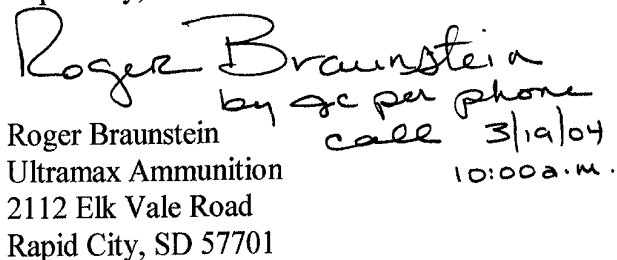 Roger Braunstein
by gc per phone
call 3/19/04
10:00 a.m.
Roger Braunstein
Ultramax Ammunition
2112 Elk Vale Road
Rapid City, SD 57701